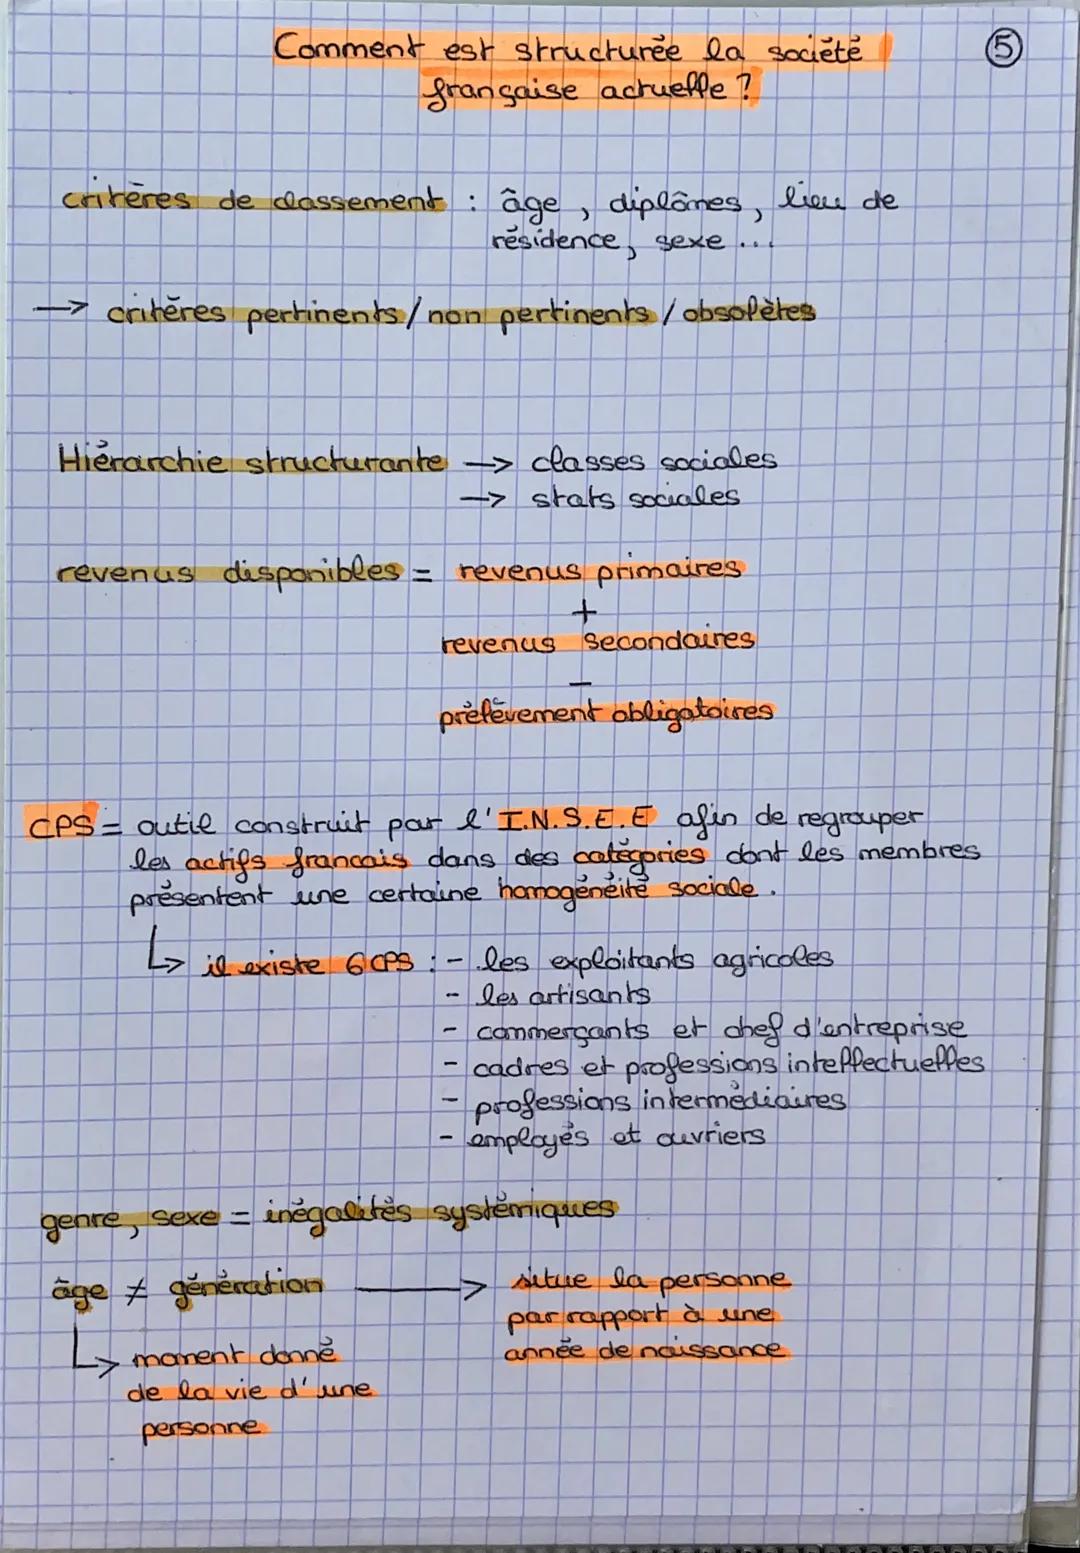 Comment est structurée la société
française actuelle ?
5
critères de classement : âge, diplômes, lieu de
résidence, sexe ...
--> critères pertinents / non pertinents / obsolètes
Hiérarchie structurante --> classes sociales
--> stats sociales
revenus disponibles = revenus primaires
+
revenus secondaires
-
prélèvement obligatoires
CPS = outil construit par l'I.N.S.E.E afin de regrouper
les actifs francais dans des catégories dont les membres
présentent une certaine homogénéité sociale.
↳ il existe 6 CPS : - les exploitants agricoles
- les artisants
- commerçants et chef d'entreprise
- cadres et professions intellectuelles
- professions intermédiaires
- employés et ouvriers
genre, sexe = inégalités systémiques
âge ≠ génération --> situe la personne
par rapport à une
année de naissance
↳ moment donné
de la vie d'une
personne